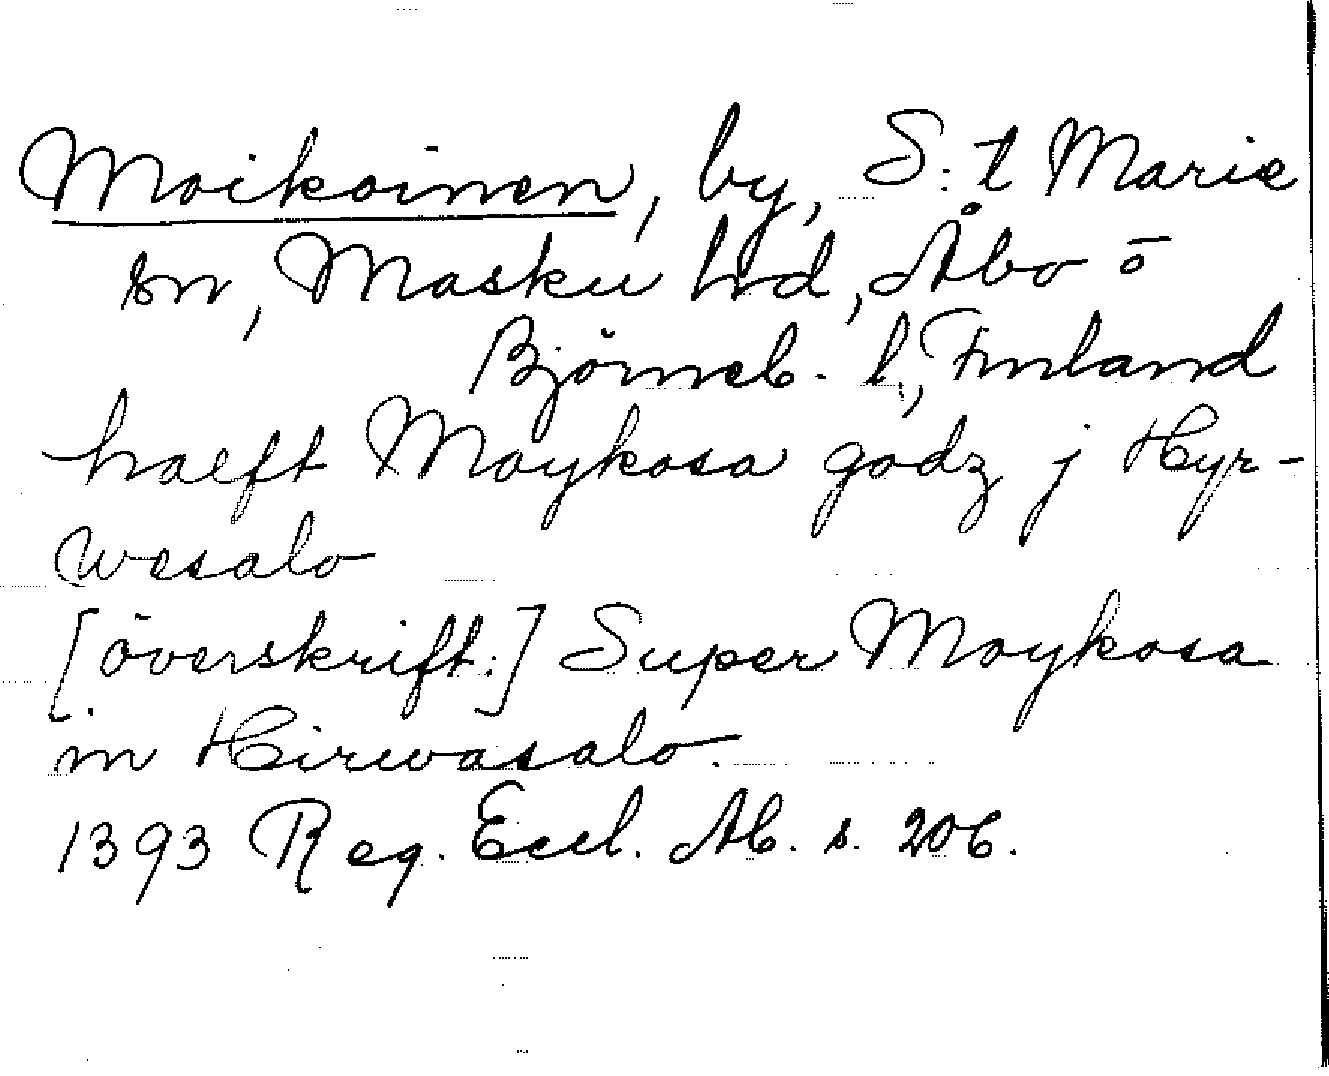 Moikoinen, by, S:t Marie
sn, Masku hrd, Åbo o
Björneb. l., Finland
haelft Moykosa godz j Hyr-
wesalo
[överskrift:] Super Moykosa
in Hirwasalo.
1393 Reg. Eccl. Ab. s. 206.